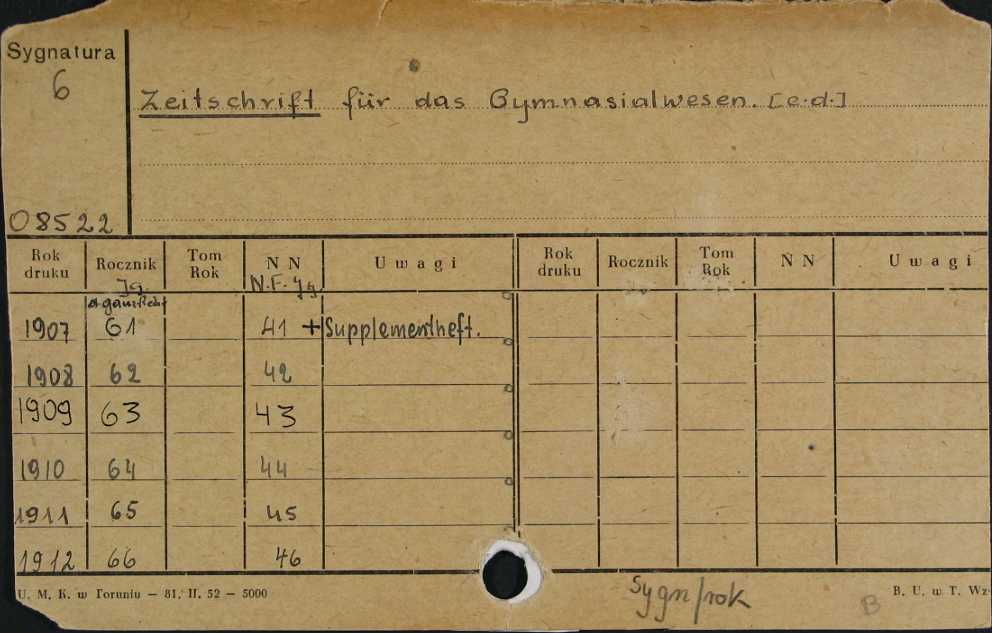 Sygnatura
6
Zeitschrift für das Gymnasialwesen. [e.d.]
08522
Rok druku Rocznik Tom Rok N N Uwagi Rok druku Rocznik Tom Rok N N Uwagi
Jg. N.F. Jg.
1907 61 41 + Supplementheft.
1908 62 42
1909 63 43
1910 64 44
1911 65 45
1912 66 46
U. M. K. w Toruniu — 81. II. 52 — 5000
Sygn/rok
B
B. U. w T. Wz.